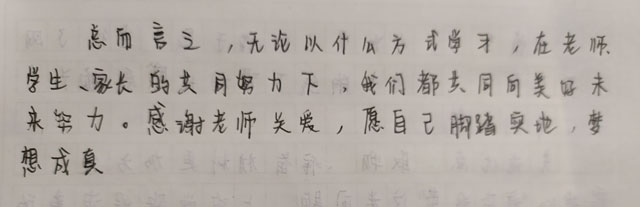 总而言之，无论以什么方式学习，在老师、
学生、家长的共同努力下，我们都共同向美好未
来努力。感谢老师关爱，愿自己脚踏实地，梦
想成真